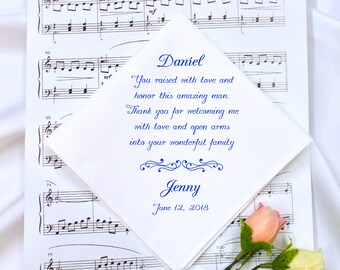 Daniel
You raised with love and
honor this amazing man.
Thank you for welcoming me
with love and open arms
into your wonderful family
Jenny
June 12, 2018